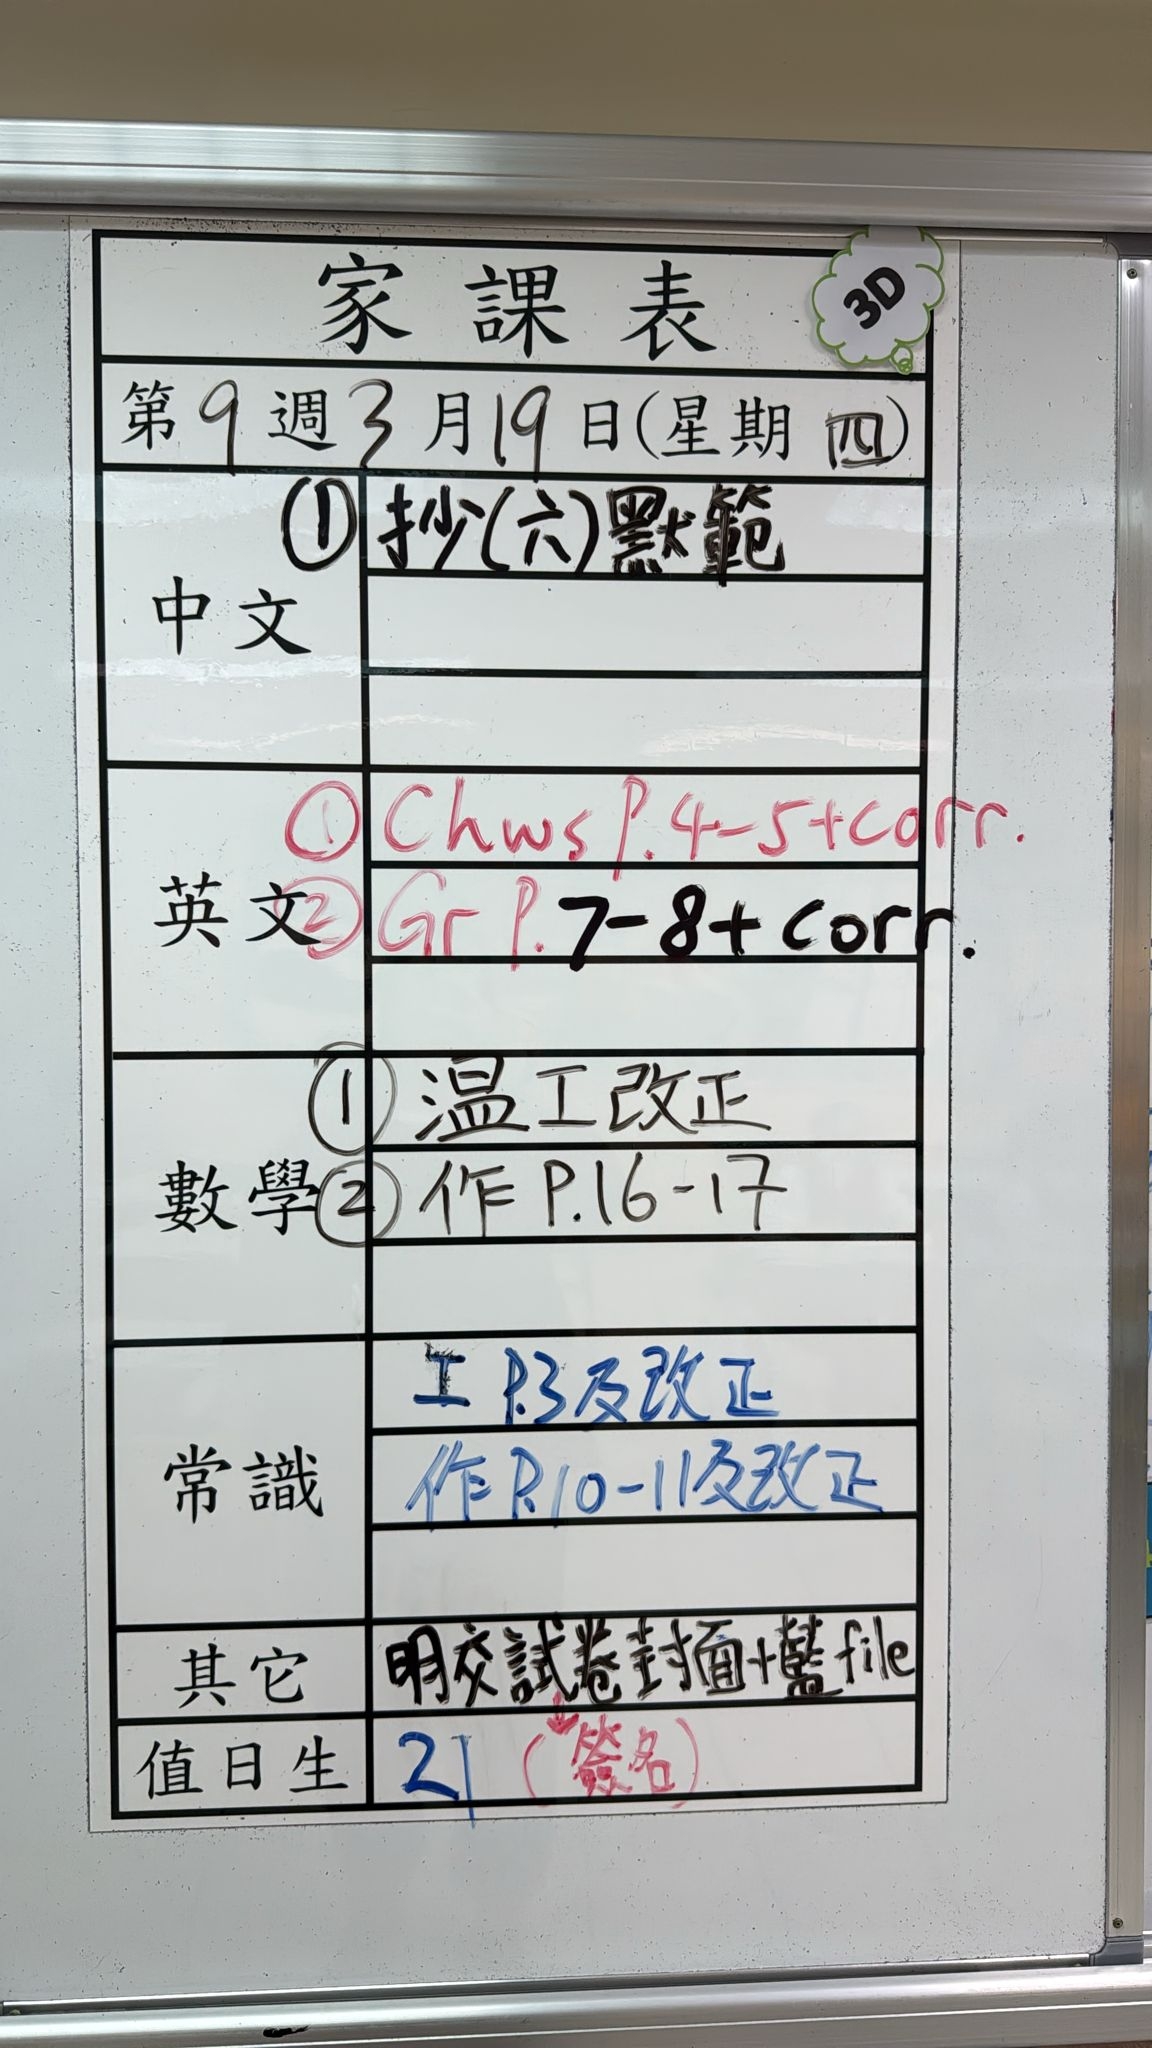 家課表
3D
第9週3月19日(星期四)
中文
① 抄(六)默範
英文
① Chws P.4-5+corr.
② Gr P.7-8+corr.
數學
① 温工改正
② 作 P.16-17
常識
工 P.3及改正
作P.10-11及改正
其它
明交試卷封面+藍file
值日生
21 (簽名)